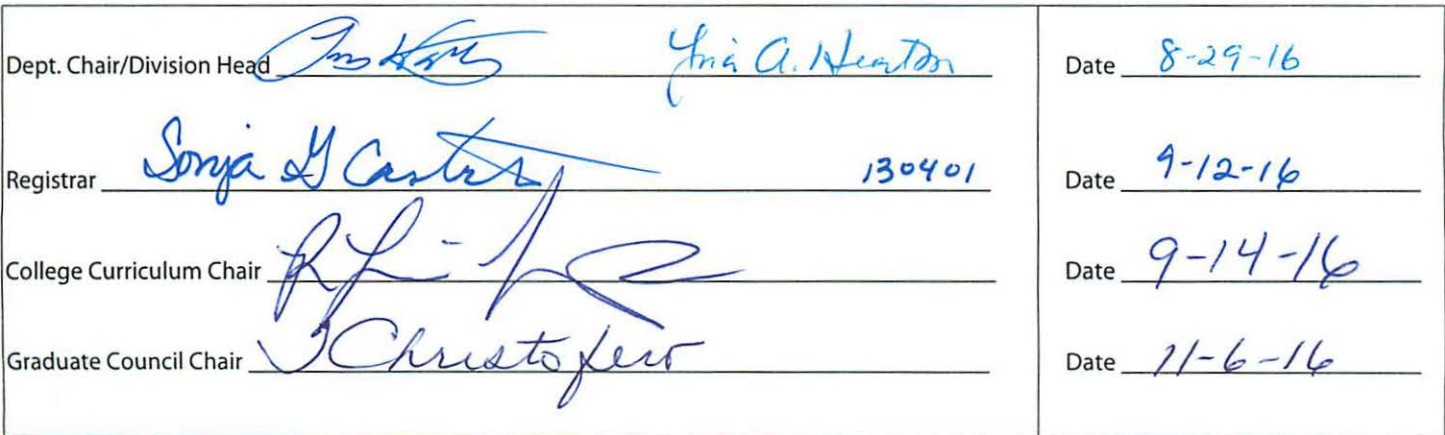 Dept. Chair/Division Head A. Heaton Date 8-29-16
Registrar Sonja G Cantrell 130401 Date 9-12-16
College Curriculum Chair Date 9-14-16
Graduate Council Chair Christofero Date 11-6-16